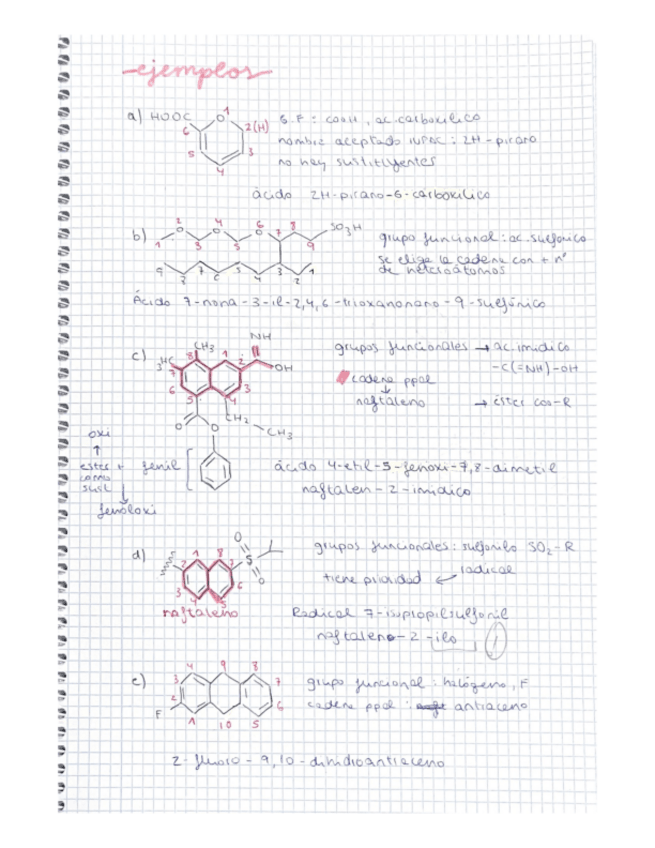 ejemplos
a) HOOC O 1 2(H) 3 4 5 6
G.F = COOH, ac. carboxílico
nombre aceptado IUPAC: 2H-pirano
no hay sustituyentes
ácido 2H-pirano-6-carboxílico
b) 1 2 O 3 4 O 5 6 O 7 8 9 SO3H
grupo funcional: ac. sulfónico
se elige la cadena con + nº
de heteroátomos
9 8 7 6 5 4 3 2 1
Ácido 7-nona-3-il-2,4,6-trioxanonano-9-sulfónico
c) CH3 H3C 8 1 2 7 6 5 4 3 NH OH
grupos funcionales → ac. imídico
-C(=NH)-OH
cadena ppal
↓
naftaleno → éster COO-R
O O CH2 CH3
oxi
↑
ester + fenil
como
sust
↓
feniloxi
ácido 4-etil-5-fenoxi-7,8-dimetil
naftalen-2-imídico
d) 1 2 3 4 5 6 7 8 O S O
naftaleno
grupos funcionales: sulfonilo SO2-R
tiene prioridad ← radical
Radical 7-isopropilsulfonil
naftaleno-2-ilo
e) F 1 2 3 4 9 8 7 6 5 10
grupo funcional: halógeno, F
cadena ppal: antraceno
2-fluoro-9,10-dihidroantraceno